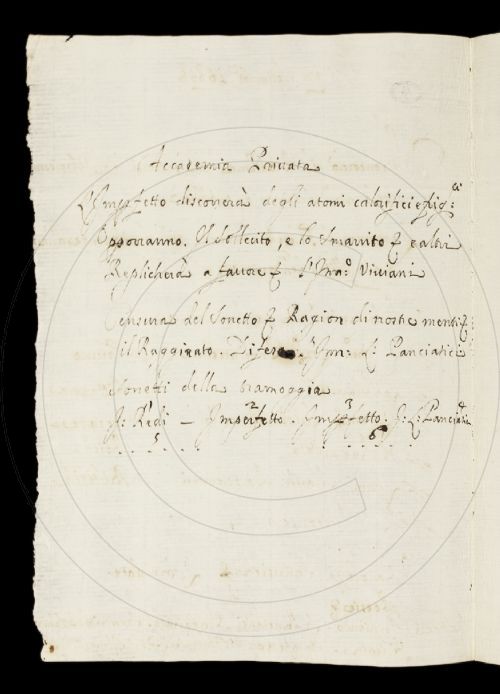 Accademia Privata
L'Imperfetto discorrerà degli atomi calorifici e frig:ci
Opporranno. Il sollecito, e lo Smarrito & e altri
Replicherà a favore & l'Inn:o Viviani
Censura del Sonetto & Ragion di nostre menti &
il Raggirato. Difesa. Lor: Panciatichi
Sonetti della tramoggia
F: Redi — Imperfetto. Imperfetto. L: Panciatichi
2 3 4
5 6